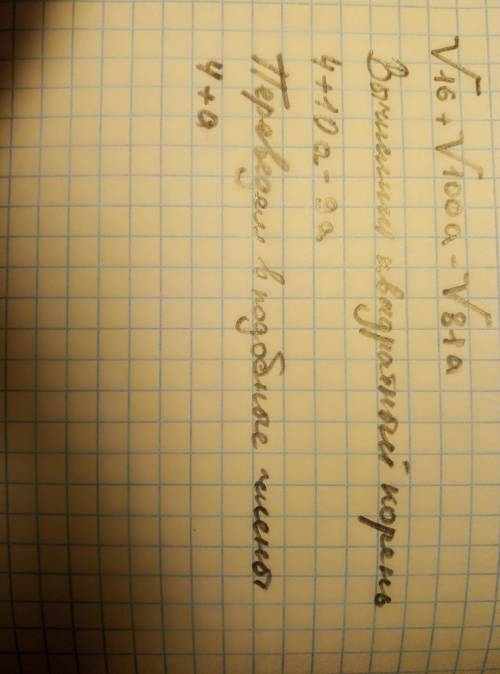 √16 + √100a - √81a
Вычислим квадратный корень
4+10a - 9a
Переведем в подобные члены
4+a